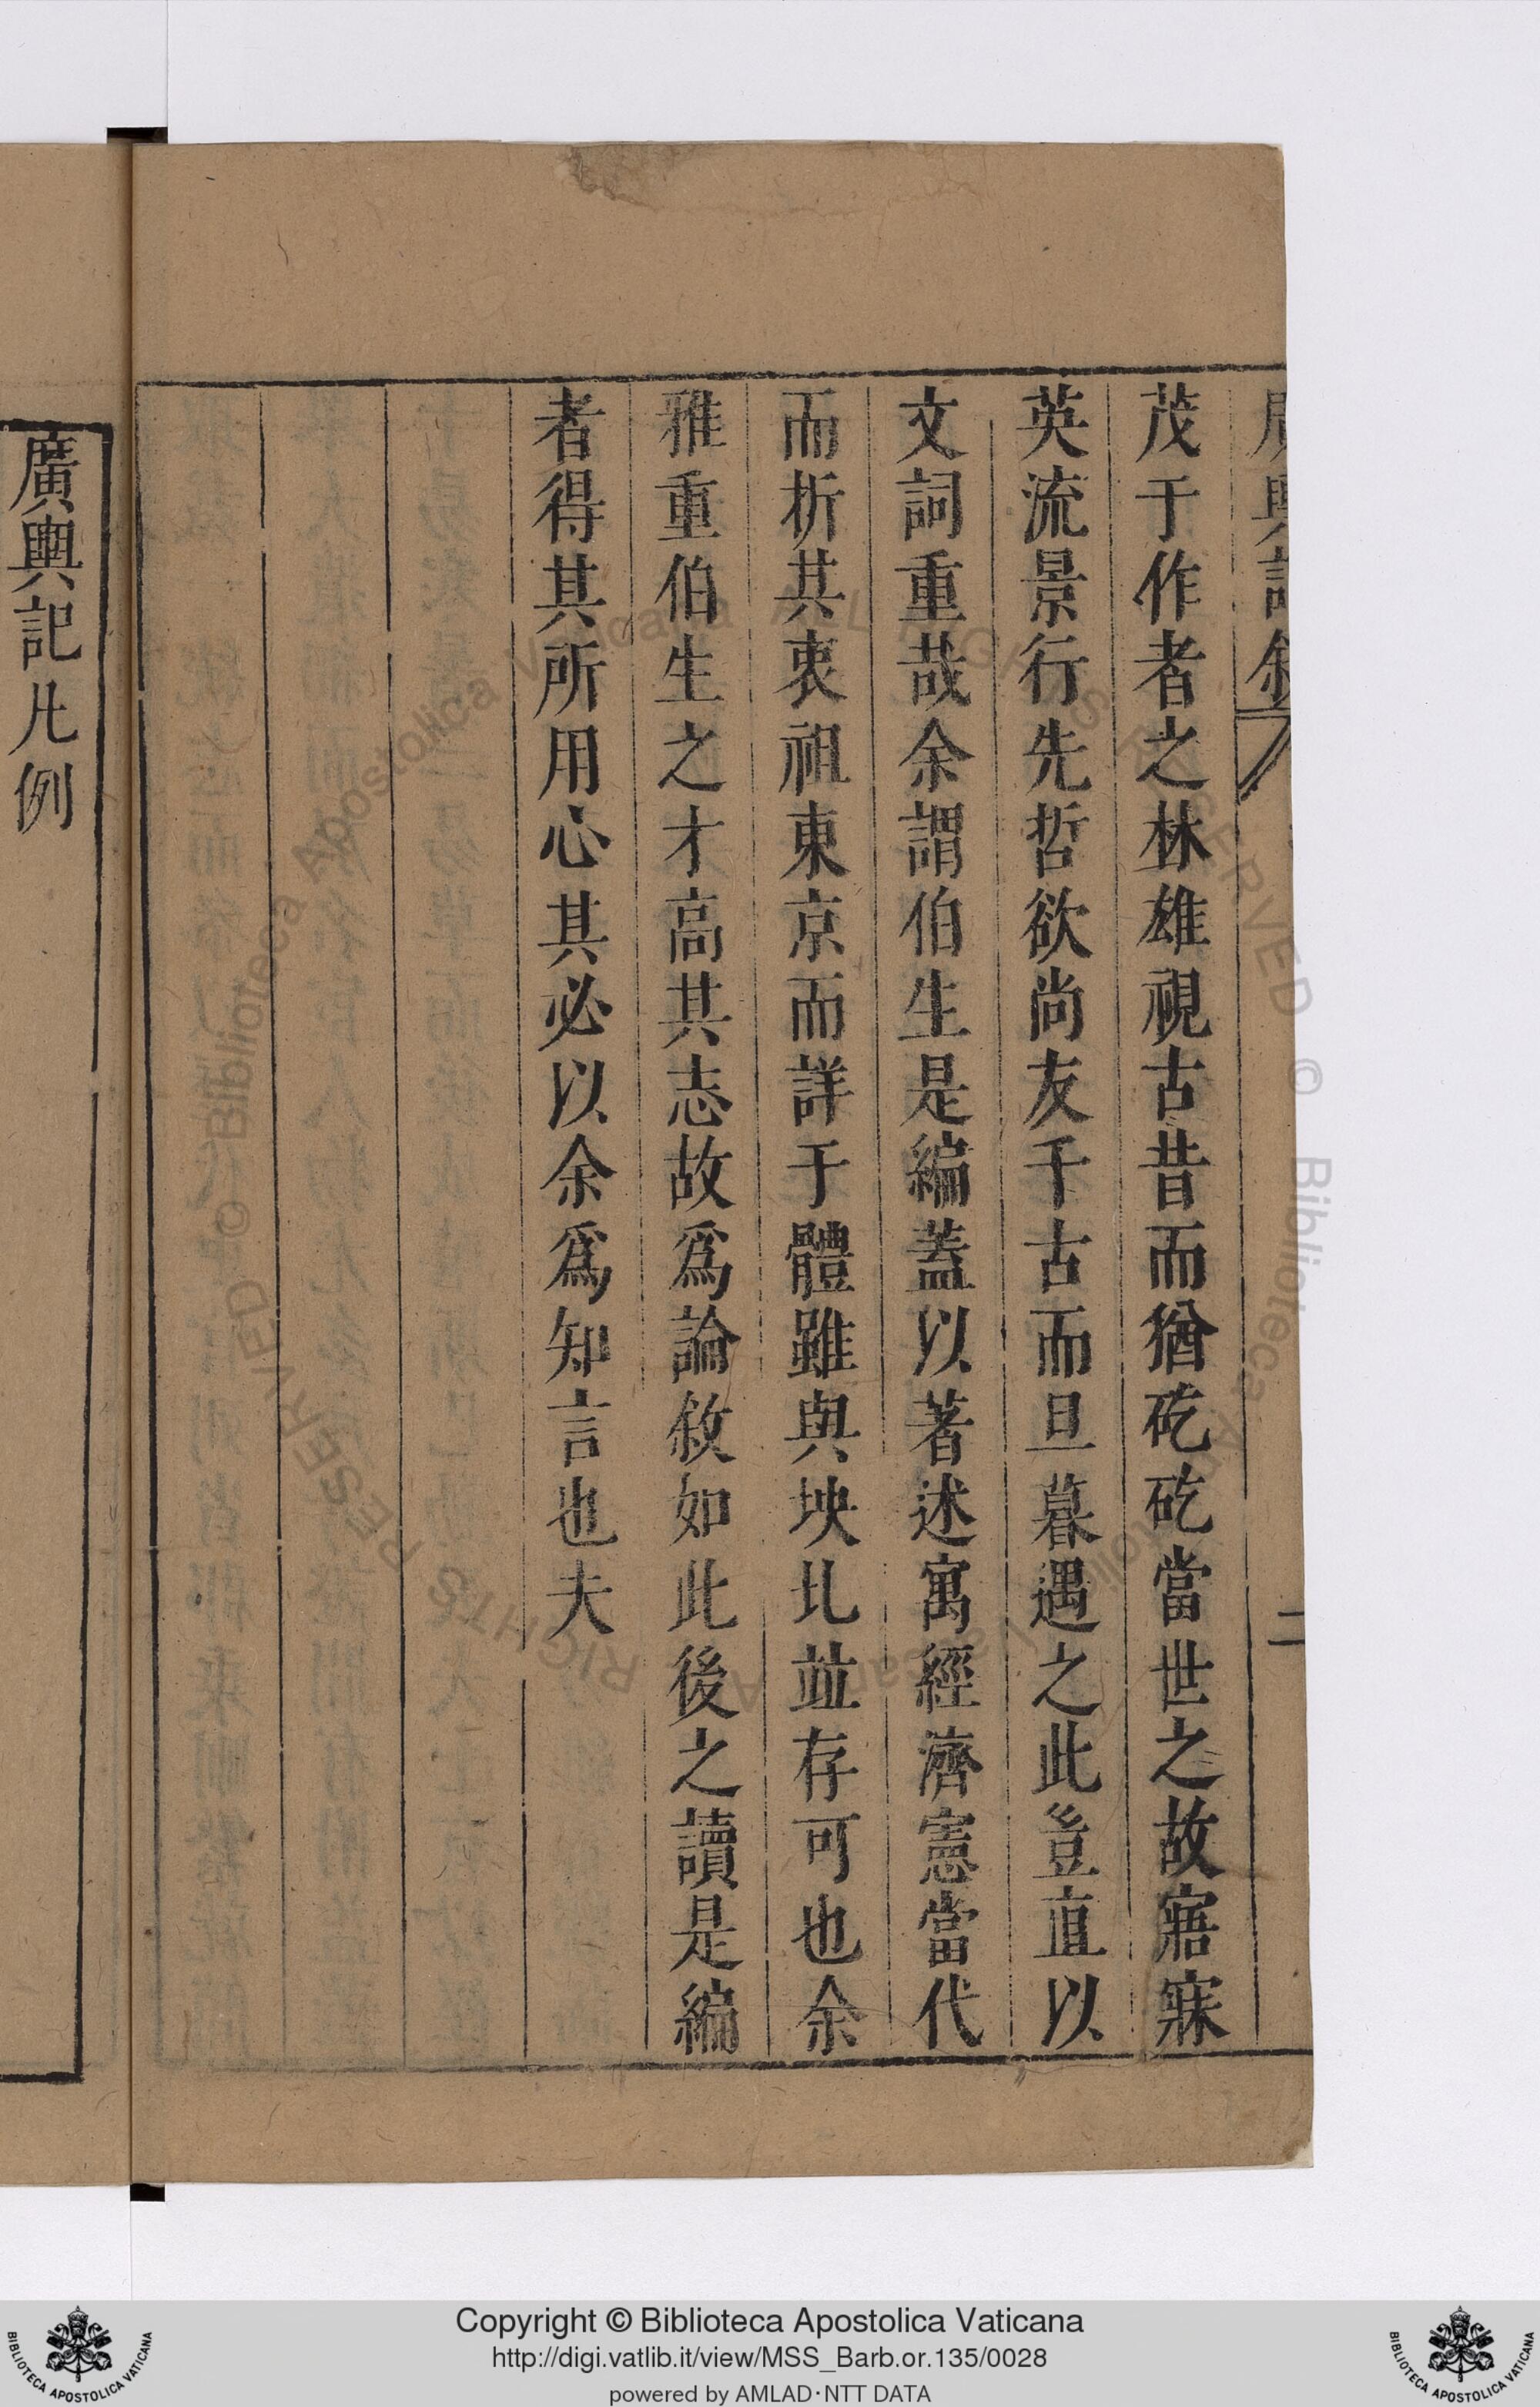 茂于作者之林雄視古昔而猶矻矻當世之故寤寐
英流景行先哲欲尚友千古而旦暮遇之此豈直以
文詞重哉余謂伯生是編蓋以著述寓經濟憲當代
而折其衷祖東京而詳于體雖與坱圠並存可也余
雅重伯生之才高其志故爲論敘如此後之讀是編
者得其所用心其必以余爲知言也夫
二
廣輿記凡例
Copyright © Biblioteca Apostolica Vaticana
http://digi.vatlib.it/view/MSS_Barb.or.135/0028
powered by AMLAD·NTT DATA
BIBLIOTECA APOSTOLICA VATICANA
BIBLIOTECA APOSTOLICA VATICANA